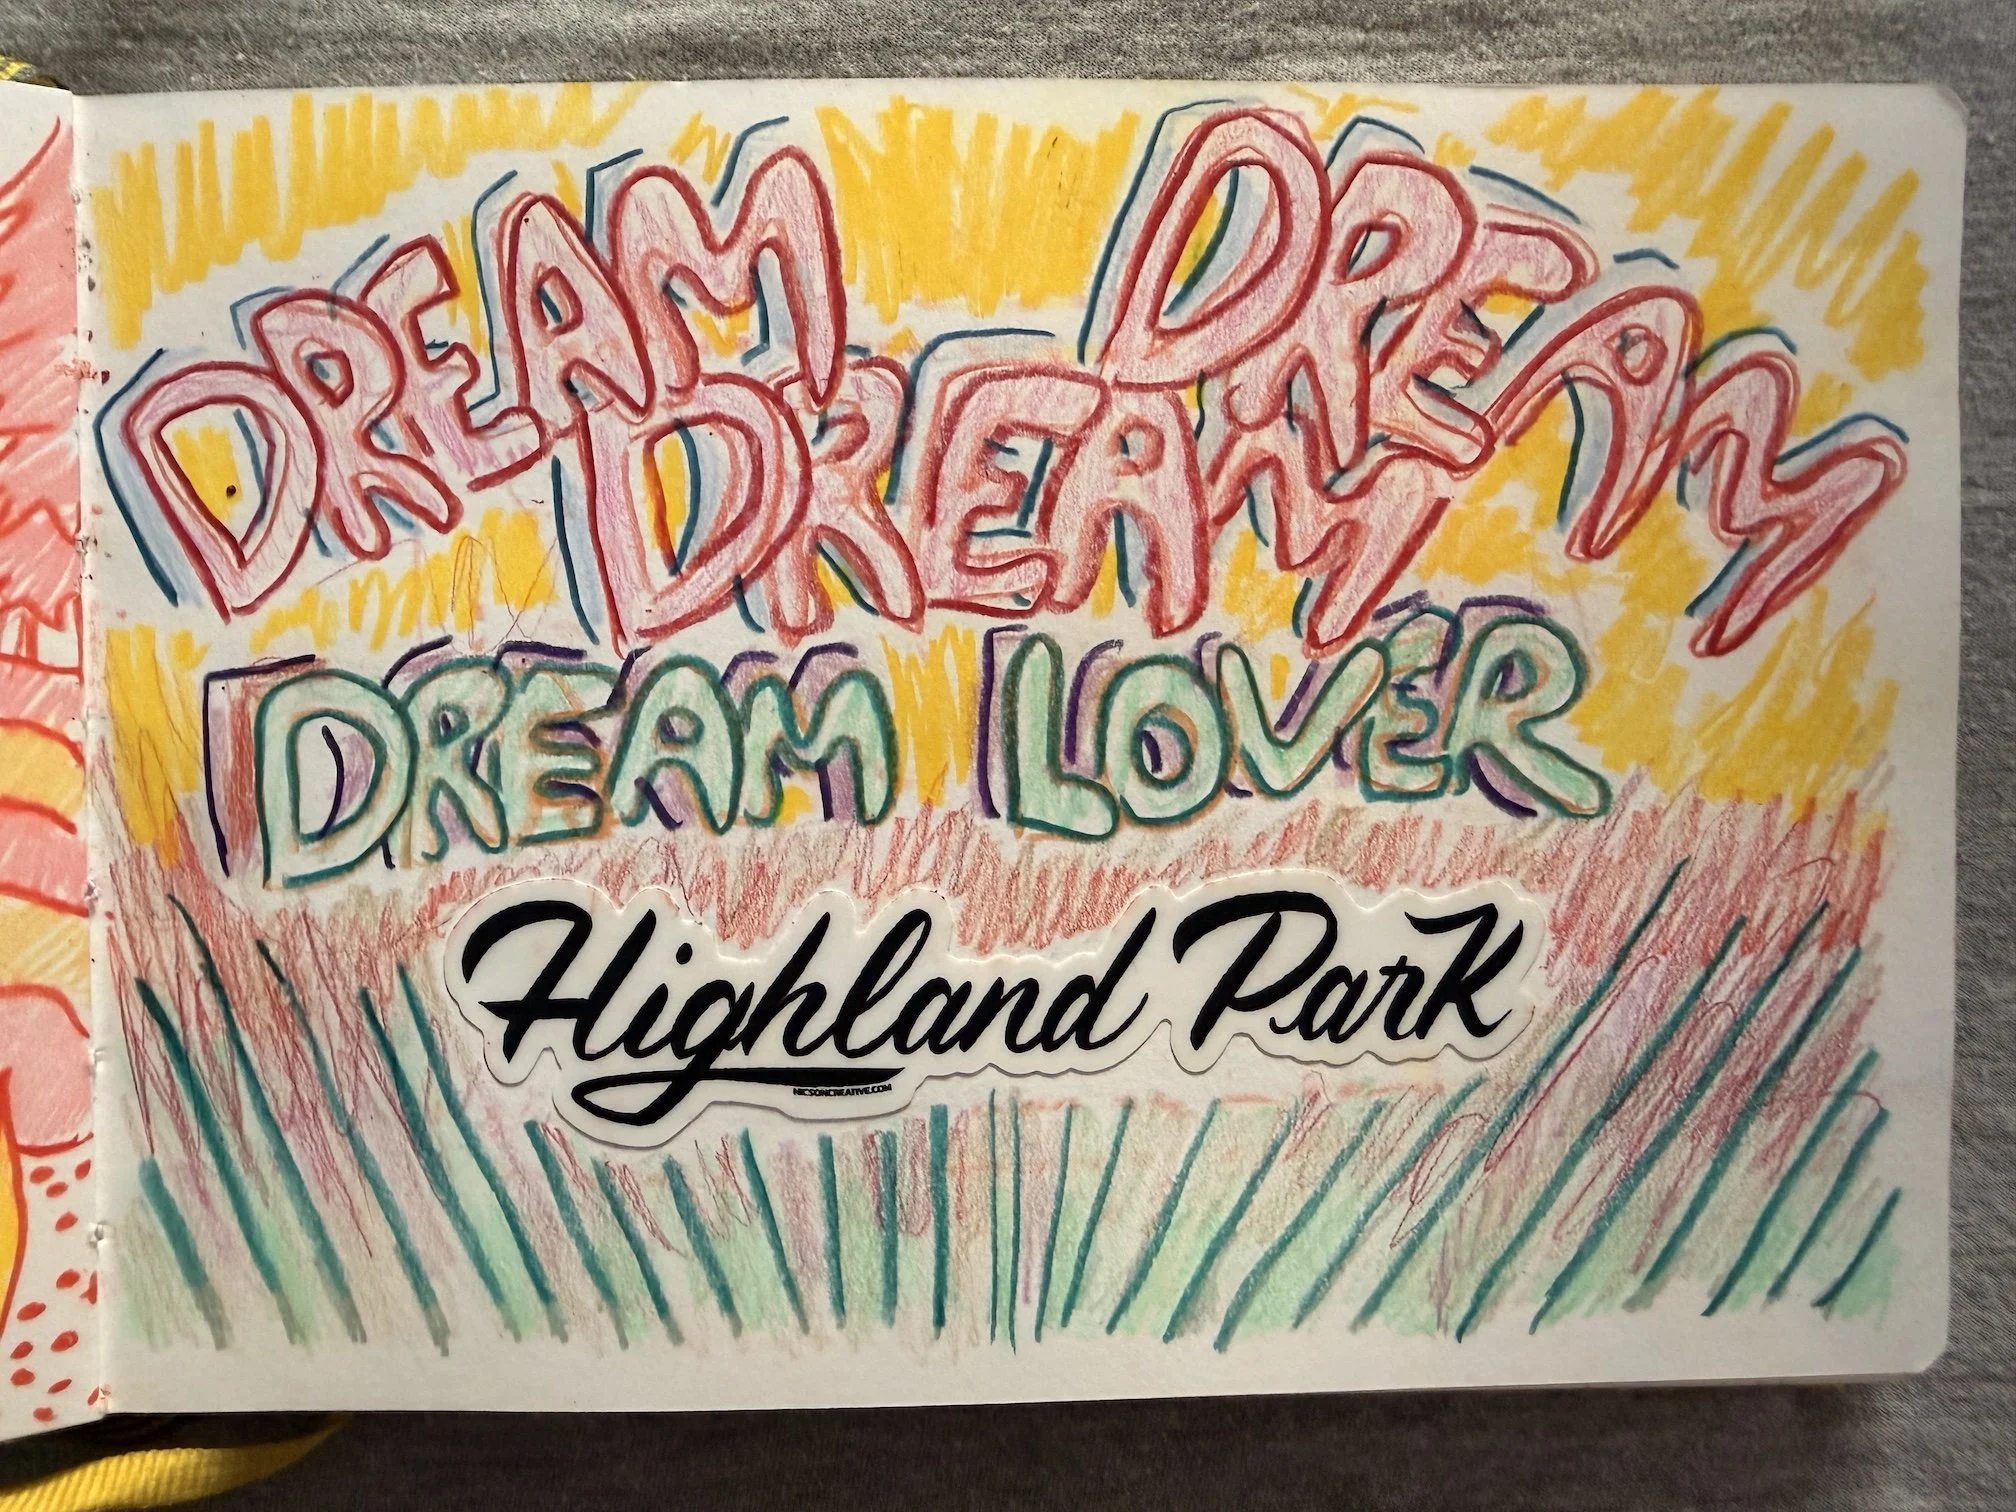 DREAM DREAM
DREAM
DREAM LOVER
Highland Park
NICSONCREATIVE.COM